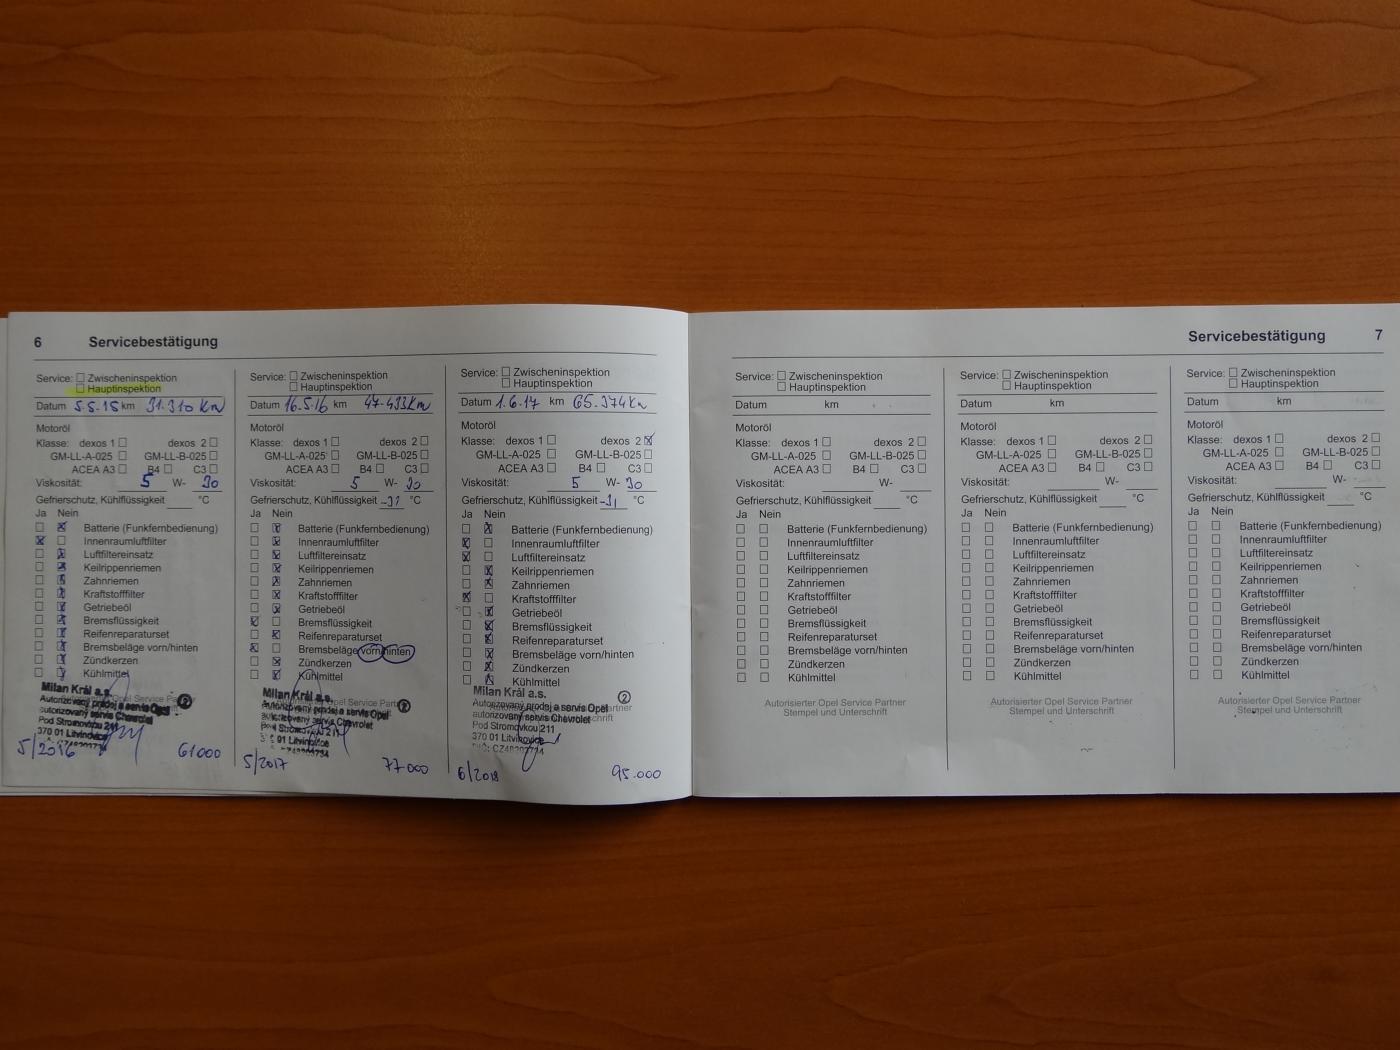 6 Servicebestätigung
Service: Zwischeninspektion
Hauptinspektion
Datum 5.5.15 km 31.310 Km
Motoröl
Klasse: dexos 1 dexos 2
GM-LL-A-025 GM-LL-B-025
ACEA A3 B4 C3
Viskosität: 5 W- 30
Gefrierschutz, Kühlflüssigkeit °C
Ja Nein
Batterie (Funkfernbedienung)
Innenraumluftfilter
Luftfiltereinsatz
Keilrippenriemen
Zahnriemen
Kraftstofffilter
Getriebeöl
Bremsflüssigkeit
Reifenreparaturset
Bremsbeläge vorn/hinten
Zündkerzen
Kühlmittel
Milan Král a.s.
Autorizovaný prodej a servis Opel
autorizovaný servis Chevrolet
Pod Stromovkou 211
370 01 Litvínovice
2
5/2016 61000
Service: Zwischeninspektion
Hauptinspektion
Datum 16.5.16 km 47.433 Km
Motoröl
Klasse: dexos 1 dexos 2
GM-LL-A-025 GM-LL-B-025
ACEA A3 B4 C3
Viskosität: 5 W- 30
Gefrierschutz, Kühlflüssigkeit -31 °C
Ja Nein
Batterie (Funkfernbedienung)
Innenraumluftfilter
Luftfiltereinsatz
Keilrippenriemen
Zahnriemen
Kraftstofffilter
Getriebeöl
Bremsflüssigkeit
Reifenreparaturset
Bremsbeläge vorn/hinten
Zündkerzen
Kühlmittel
Milan Král a.s.
Autorizovaný prodej a servis Opel
autorizovaný servis Chevrolet
Pod Stromovkou 211
370 01 Litvínovice
2
5/2017 77000
Service: Zwischeninspektion
Hauptinspektion
Datum 1.6.17 km 65.374 Km
Motoröl
Klasse: dexos 1 dexos 2
GM-LL-A-025 GM-LL-B-025
ACEA A3 B4 C3
Viskosität: 5 W- 30
Gefrierschutz, Kühlflüssigkeit -31 °C
Ja Nein
Batterie (Funkfernbedienung)
Innenraumluftfilter
Luftfiltereinsatz
Keilrippenriemen
Zahnriemen
Kraftstofffilter
Getriebeöl
Bremsflüssigkeit
Reifenreparaturset
Bremsbeläge vorn/hinten
Zündkerzen
Kühlmittel
Milan Král a.s.
Autorizovaný prodej a servis Opel
autorizovaný servis Chevrolet
Pod Stromovkou 211
370 01 Litvínovice
2
6/2018 95.000
Servicebestätigung 7
Service: Zwischeninspektion
Hauptinspektion
Datum km
Motoröl
Klasse: dexos 1 dexos 2
GM-LL-A-025 GM-LL-B-025
ACEA A3 B4 C3
Viskosität: W-
Gefrierschutz, Kühlflüssigkeit °C
Ja Nein
Batterie (Funkfernbedienung)
Innenraumluftfilter
Luftfiltereinsatz
Keilrippenriemen
Zahnriemen
Kraftstofffilter
Getriebeöl
Bremsflüssigkeit
Reifenreparaturset
Bremsbeläge vorn/hinten
Zündkerzen
Kühlmittel
Autorisierter Opel Service Partner
Stempel und Unterschrift
Service: Zwischeninspektion
Hauptinspektion
Datum km
Motoröl
Klasse: dexos 1 dexos 2
GM-LL-A-025 GM-LL-B-025
ACEA A3 B4 C3
Viskosität: W-
Gefrierschutz, Kühlflüssigkeit °C
Ja Nein
Batterie (Funkfernbedienung)
Innenraumluftfilter
Luftfiltereinsatz
Keilrippenriemen
Zahnriemen
Kraftstofffilter
Getriebeöl
Bremsflüssigkeit
Reifenreparaturset
Bremsbeläge vorn/hinten
Zündkerzen
Kühlmittel
Autorisierter Opel Service Partner
Stempel und Unterschrift
Service: Zwischeninspektion
Hauptinspektion
Datum km
Motoröl
Klasse: dexos 1 dexos 2
GM-LL-A-025 GM-LL-B-025
ACEA A3 B4 C3
Viskosität: W-
Gefrierschutz, Kühlflüssigkeit °C
Ja Nein
Batterie (Funkfernbedienung)
Innenraumluftfilter
Luftfiltereinsatz
Keilrippenriemen
Zahnriemen
Kraftstofffilter
Getriebeöl
Bremsflüssigkeit
Reifenreparaturset
Bremsbeläge vorn/hinten
Zündkerzen
Kühlmittel
Autorisierter Opel Service Partner
Stempel und Unterschrift